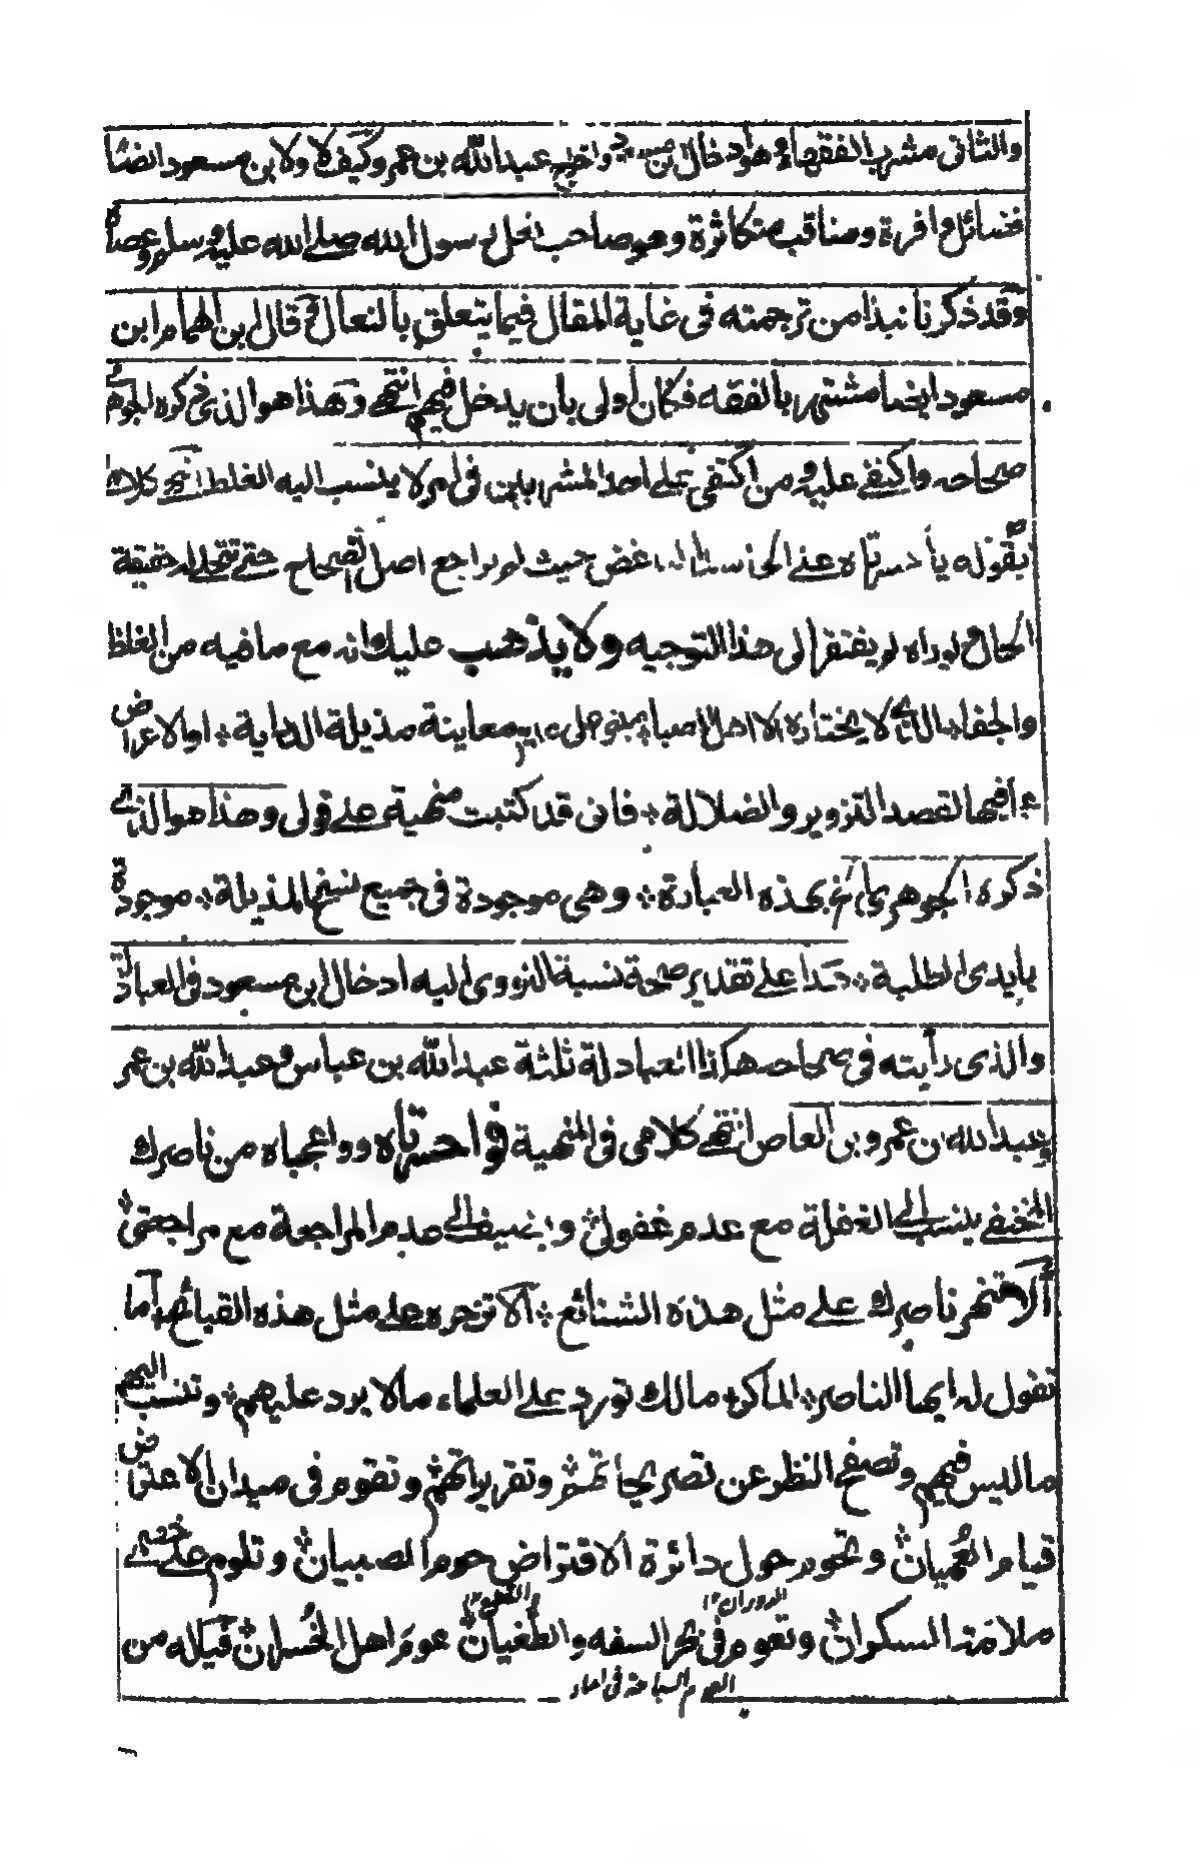 والثانى مشرب الفقهاء وهو ادخال ابن مسعود واخراج عبد الله بن عمرو كيف لا ولابن مسعود ايضا
فضائل وافرة ومناقب متكاثرة وهو صاحب نعل رسول الله صلى الله عليه وسلم وعصاه
وقد ذكرنا نبذا من ترجمته فى غاية المقال فيما يتعلق بالنعال قال ابن الهمام ابن
مسعود ايضا مشتهر بالفقه فكان اولى بان يدخل فيهم انتهى وهذا هو الذى ذكره الجوهرى
صحاحه واكتفى عليه ومن اكتفى على احد المشربين فى امر لا ينسب اليه الغلط انتهى كلامك
بقوله يا حسرتاه على حيث لم يراجع اصل الصحاح حتى تتجلى له حقيقة
الحال لو راه لم يفتقر الى هذا التوجيه ولا يذهب عليك انه مع ما فيه من الغلظ
والجفاء الذى لا يختاره الا اهل معاينة مذيلة الدراية ؞ او الاعراض
عما فيها لقصد التزوير والضلالة ؞ فانى قد كتبت منهية على قولى وهذا هو الذى
ذكره الجوهرى الخ بهذه العبارة ؞ وهى موجودة فى جميع نسخ المذيلة ؞ موجودة
بايدى الطلبة ؞ هذا على تقدير صحة نسبة النووى اليه ادخال ابن مسعود فى العبادلة
والذى رأيته فى صحاحه هكذا العبادلة ثلثة عبد الله بن عباس وعبد الله بن عمر
وعبد الله بن عمرو بن العاص انتهى كلامى فى المنهية فواحسرتاه وواعجباه من ناصرك
المختفى ينسب الى الغفلة مع عدم غفولى ؞ ويضيف الى عدم المراجعة مع مراجعتى ؞
ألا تنهر ناصرك على مثل هذه الشنائع ؞ ألا تزجره على مثل هذه القبائح ؞ أما
تقول له ايها الناصر ؞ الماكر ؞ مالك تورد على العلماء مالا يرد عليهم ؞ وتنسب اليهم
ما ليس فيهم وتصفح النظر عن تصريحاتهم ؞ وتقريراتهم ؞ وتقوم فى ميدان الاعتراض
قيام العميان ؞ وتحور حول دائرة الاقتراض حوم الصبيان ؞ وتلوم على خصمى
ملامة السكران ؞ وتعوم فى بحر السفه والطغيان ؞ عوم اهل الخسران ؞ فياله من
الدوران ١٢
العوم السباحة فى الماء